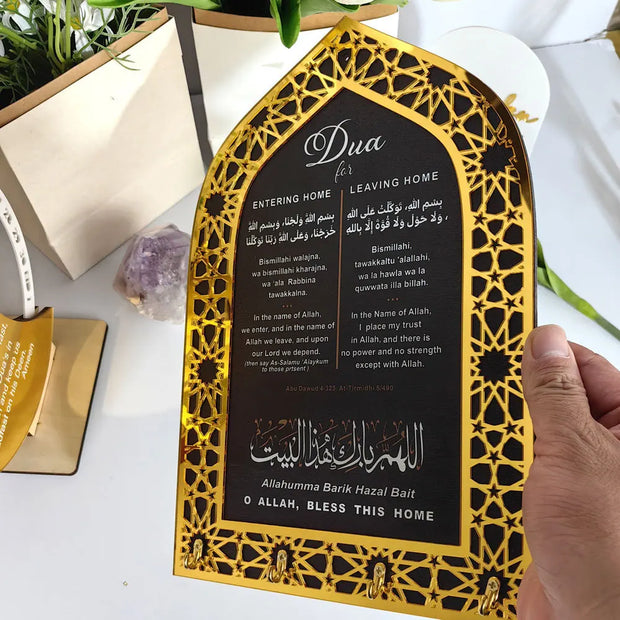 Dua
for
ENTERING HOME
بِسْمِ اللهِ وَلَجْنَا، وَبِسْمِ اللهِ
خَرَجْنَا، وَعَلَى اللهِ رَبِّنَا تَوَكَّلْنَا
Bismillahi walajna,
wa bismillahi kharajna,
wa 'ala Rabbina
tawakkaina.
In the name of Allah,
we enter, and in the name of
Allah we leave, and upon
our Lord we depend.
(then say As-Salamu 'Alaykum
to those prtsent)
LEAVING HOME
بِسْمِ اللهِ، تَوَكَّلْتُ عَلَى اللهِ
، وَلَا حَوْلَ وَلَا قُوَّةَ إِلَّا بِاللهِ
Bismillahi,
tawakkaltu 'alallahi,
wa la hawla wa la
quwwata illa billah.
In the Name of Allah,
I place my trust
in Allah, and there is
no power and no strength
except with Allah.
Abu Dawud 4:325. At-Tirmidhi 5/490
اللهم بارك هذا البيت
Allahumma Barik Hazal Bait
O ALLAH, BLESS THIS HOME